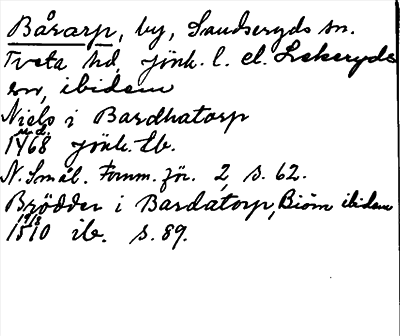 Båsarp, by, Sandseryds sn.
Tveta hd, jönk. l. el. Lekeryds
sn, ibidem
Niels i Bardhatorp
u.d.
1468 jönk. tb.
N. Smål. Fornm. för. 2, s. 62.
Brödder i Bardatorp, Biörn ibidem
19/18
1510 ib. s. 89.